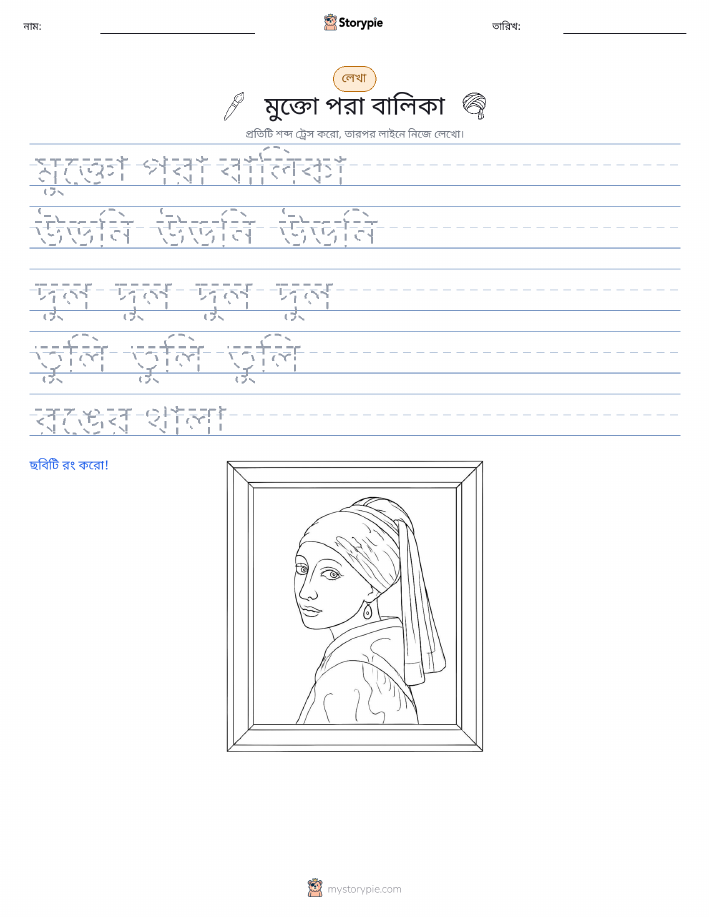 নাম:
Storypie
তারিখ:
লেখা
মুক্তো পরা বালিকা
প্রতিটি শব্দ ট্রেস করো, তারপর লাইনে নিজে লেখো।
মুক্তো পরা বালিকা
উড়নি উড়নি উড়নি
দুল দুল দুল দুল
তুলি তুলি তুলি
রঙের থালা
ছবিটি রং করো!
mystorypie.com